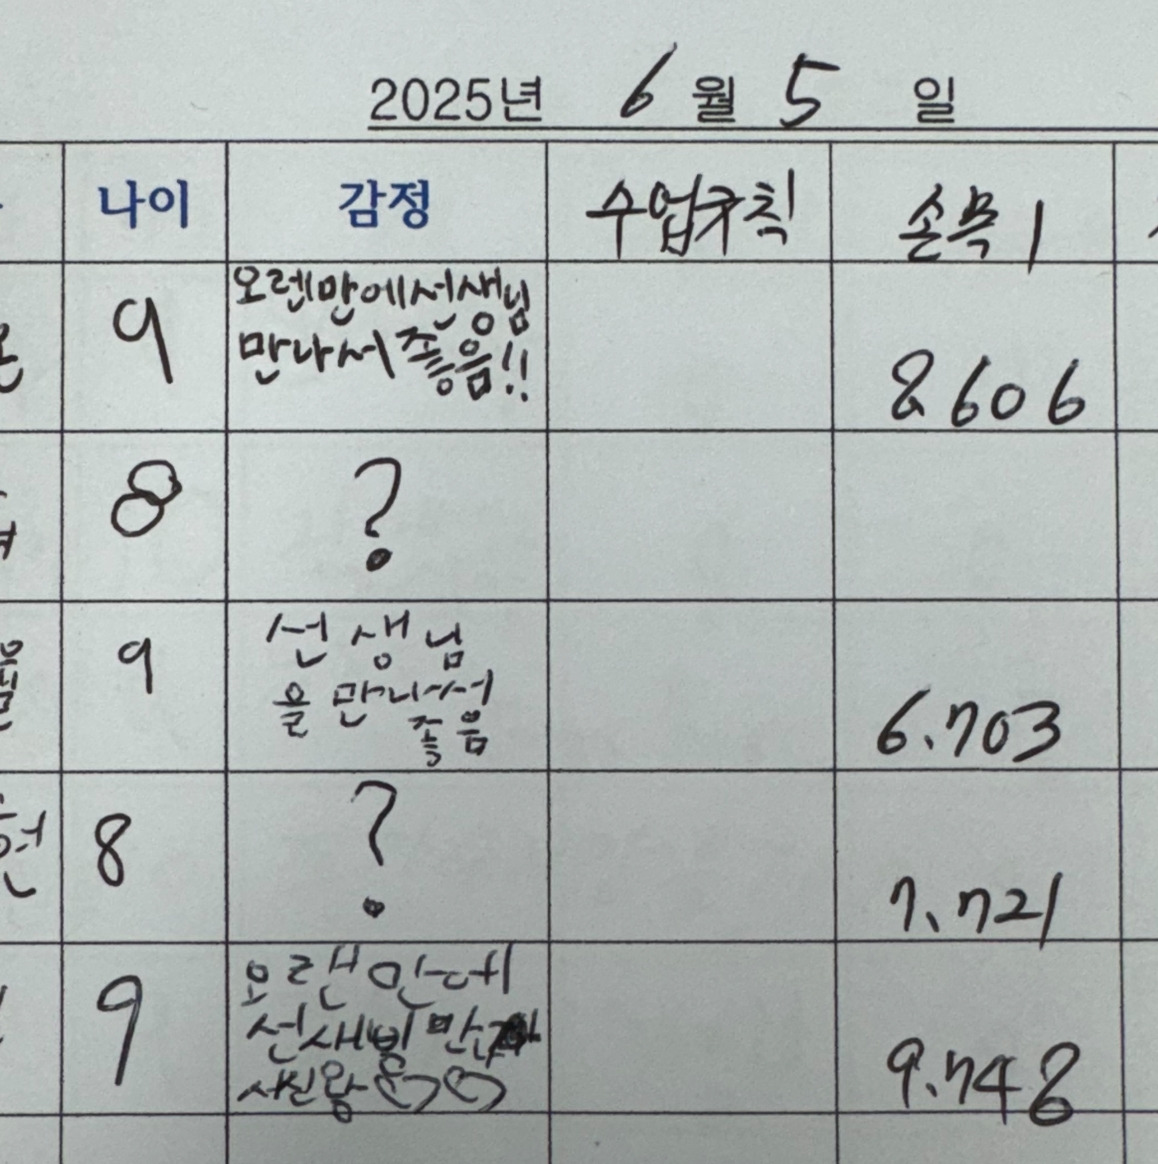 2025년 6월 5일
나이 감정 수업규칙 손목1
9 오렌만에선생님
만나서좋음!! 8606
8 ?
9 선생님
을 만나서
좋음 6.703
헌 8 ? 7.721
9 오랜만에
선새빔 만나
9.748